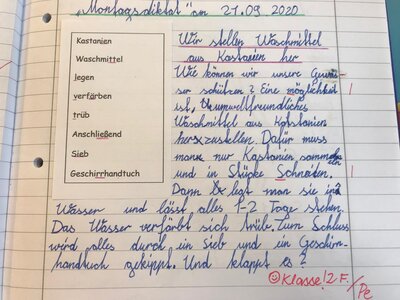 „Montagsdiktat" am 21.09.2020
Kastanien
Waschmittel
legen
verfärben
trüb
Anschließend
Sieb
Geschirrhandtuch
Wir stellen Waschmittel
aus Kastanien her
Wie können wir unsere Gewäs-
ser schützen? Eine möglichkeit
ist, umweltfreundliches
Waschmittel aus Kastanien
herzustellen. Dafür muss
man nur Kastanien sammeln
und in Stücke Schneiden.
Dann legt man sie in
Wasser und lässt alles 1-2 Tage stehen.
Das Wasser verfärbt sich trüb. Zum Schluss
wird alles durch ein Sieb und ein Geschirr-
handtuch gekippt. Und klappt es?
Klasse! 2 F. / Pe